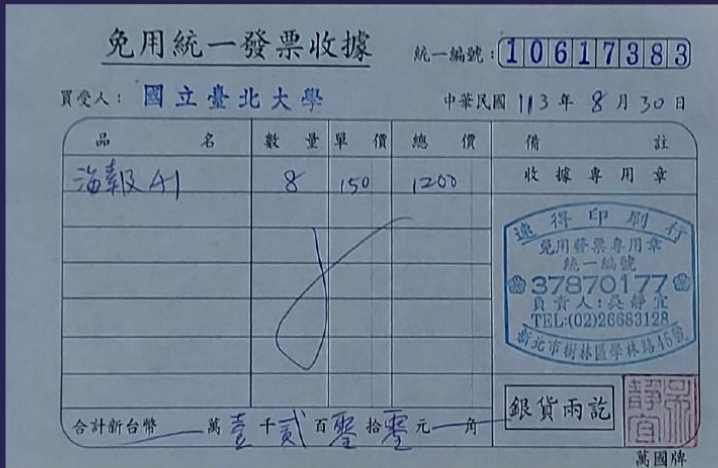 免用統一發票收據
統一編號：10617383
買受人：國立臺北大學
中華民國 113 年 8 月 30 日
品名 數量 單價 總價 備註
海報 A1 8 150 1200
收據專用章
遠得印刷行
免用發票專用章
統一編號
37870177
負責人：吳靜宜
TEL:(02)26683128
新北市樹林區學林路45號
合計新台幣 萬 壹 千 貳 百 零 拾 零 元 角
銀貨兩訖
吳靜宜
萬國牌